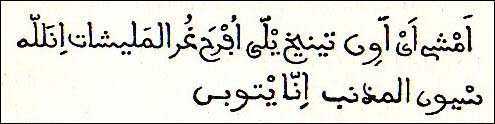 اَمْشِي اَىْ اَوِن تينيخ يْلّى اُبْرَح غُر المَليشات اِنَلله
سيون المذنب اِنّا يْتوبى